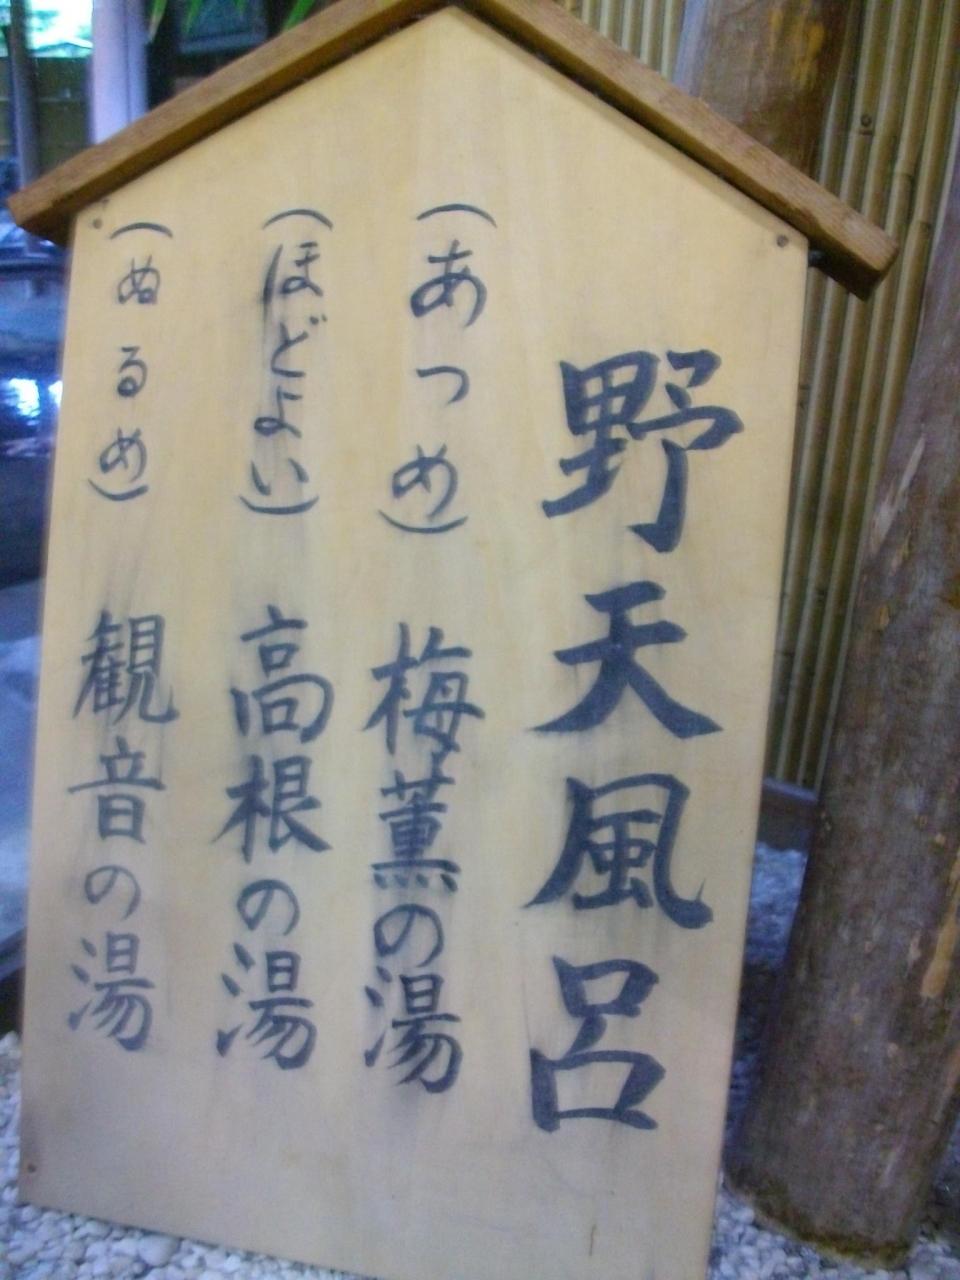 野天風呂
(あつめ) 梅薫の湯
(ほどよい) 高根の湯
(ぬるめ) 観音の湯